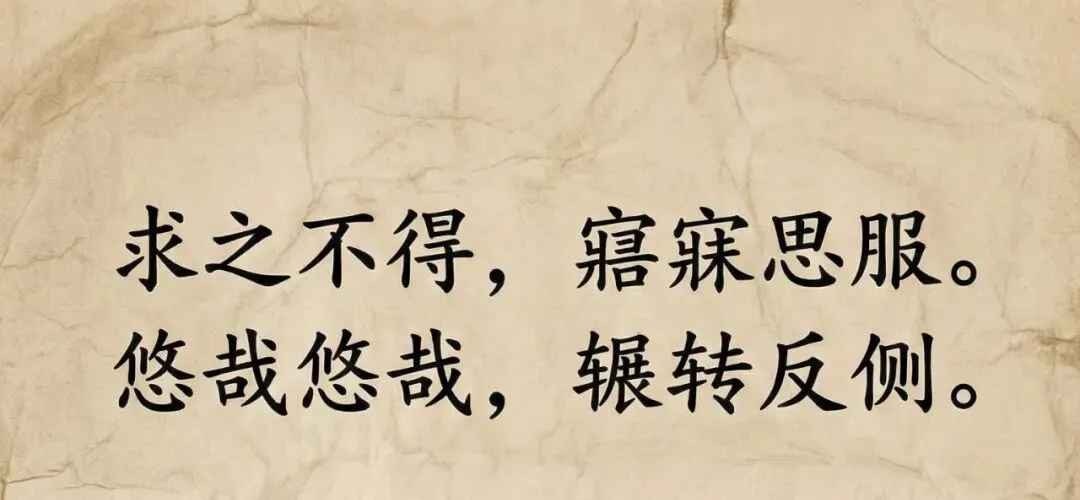 求之不得，寤寐思服。
悠哉悠哉，辗转反侧。